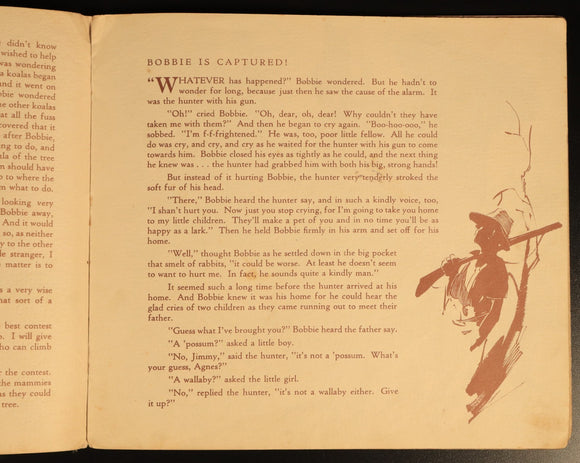 e didn't know
wished to help
was wondering
a koalas began
and it went on
bie wondered
e other koalas
at all the fuss
covered that it
after Bobbie,
ing to do, and
tla of the tree
n should have
p to where the
m what to do.
looking very
Bobbie away,
And it would
so, as neither
y to the other
le stranger, I
e matter is to
s a very wise
hat sort of a
e best contest
p. I will give
ho can climb
r the contest.
the mammies
as they could
tree.
BOBBIE IS CAPTURED!
"WHATEVER has happened?" Bobbie wondered. But he hadn't to
wonder for long, because just then he saw the cause of the alarm. It
was the hunter with his gun.
"Oh!" cried Bobbie. "Oh, dear, oh, dear! Why couldn't they have
taken me with them?" And then he began to cry again. "Boo-hoo-ooo," he
sobbed. "I'm f-f-frightened." He was, too, poor little fellow. All he could
do was cry, and cry, and cry as he waited for the hunter with his gun to come
towards him. Bobbie closed his eyes as tightly as he could, and the next thing
he knew was . . . the hunter had grabbed him with both his big, strong hands!
But instead of it hurting Bobbie, the hunter very tenderly stroked the
soft fur of his head.
"There," Bobbie heard the hunter say, and in such a kindly voice, too,
"I shan't hurt you. Now just you stop crying, for I'm going to take you home
to my little children. They'll make a pet of you and in no time you'll be as
happy as a lark." Then he held Bobbie firmly in his arm and set off for his
home.
"Well," thought Bobbie as he settled down in the big pocket
that smelt of rabbits, "it could be worse. At least he doesn't seem
to want to hurt me. In fact, he sounds quite a kindly man."
It seemed such a long time before the hunter arrived at his
home. And Bobbie knew it was his home for he could hear the
glad cries of two children as they came running out to meet their
father.
"Guess what I've brought you?" Bobbie heard the father say.
"A 'possum?" asked a little boy.
"No, Jimmy," said the hunter, "it's not a 'possum. What's
your guess, Agnes?"
"A wallaby?" asked the little girl.
"No," replied the hunter, "it's not a wallaby either. Give
it up?"